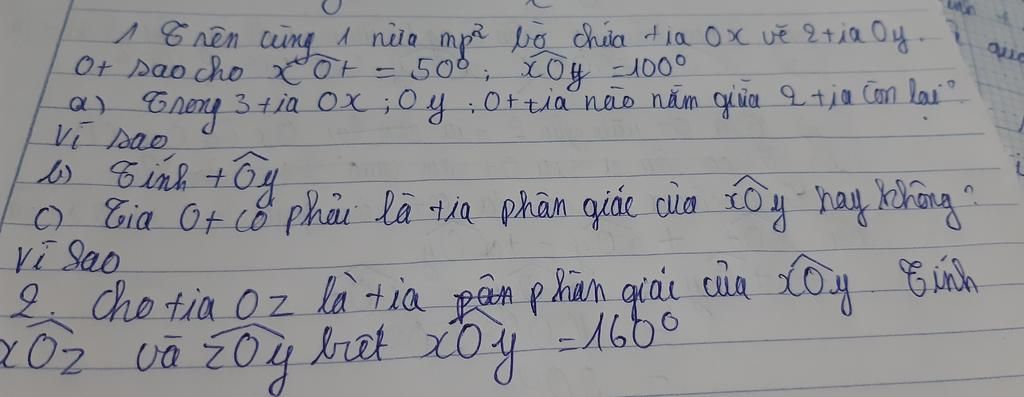 1 Trên cùng 1 nửa mp² bờ chứa tia Ox vẽ 2 tia Oy.
Ot sao cho xOt = 50°; xOy = 100°
a) Trong 3 tia Ox; Oy; Ot tia nào nằm giữa 2 tia còn lại?
Vì sao
b) Tính tOy
c) Tia Ot có phải là tia phân giác của xOy hay không?
Vì sao
2. Cho tia Oz là tia phân giác của xOy Tính
xOz và zOy biết xOy = 160°